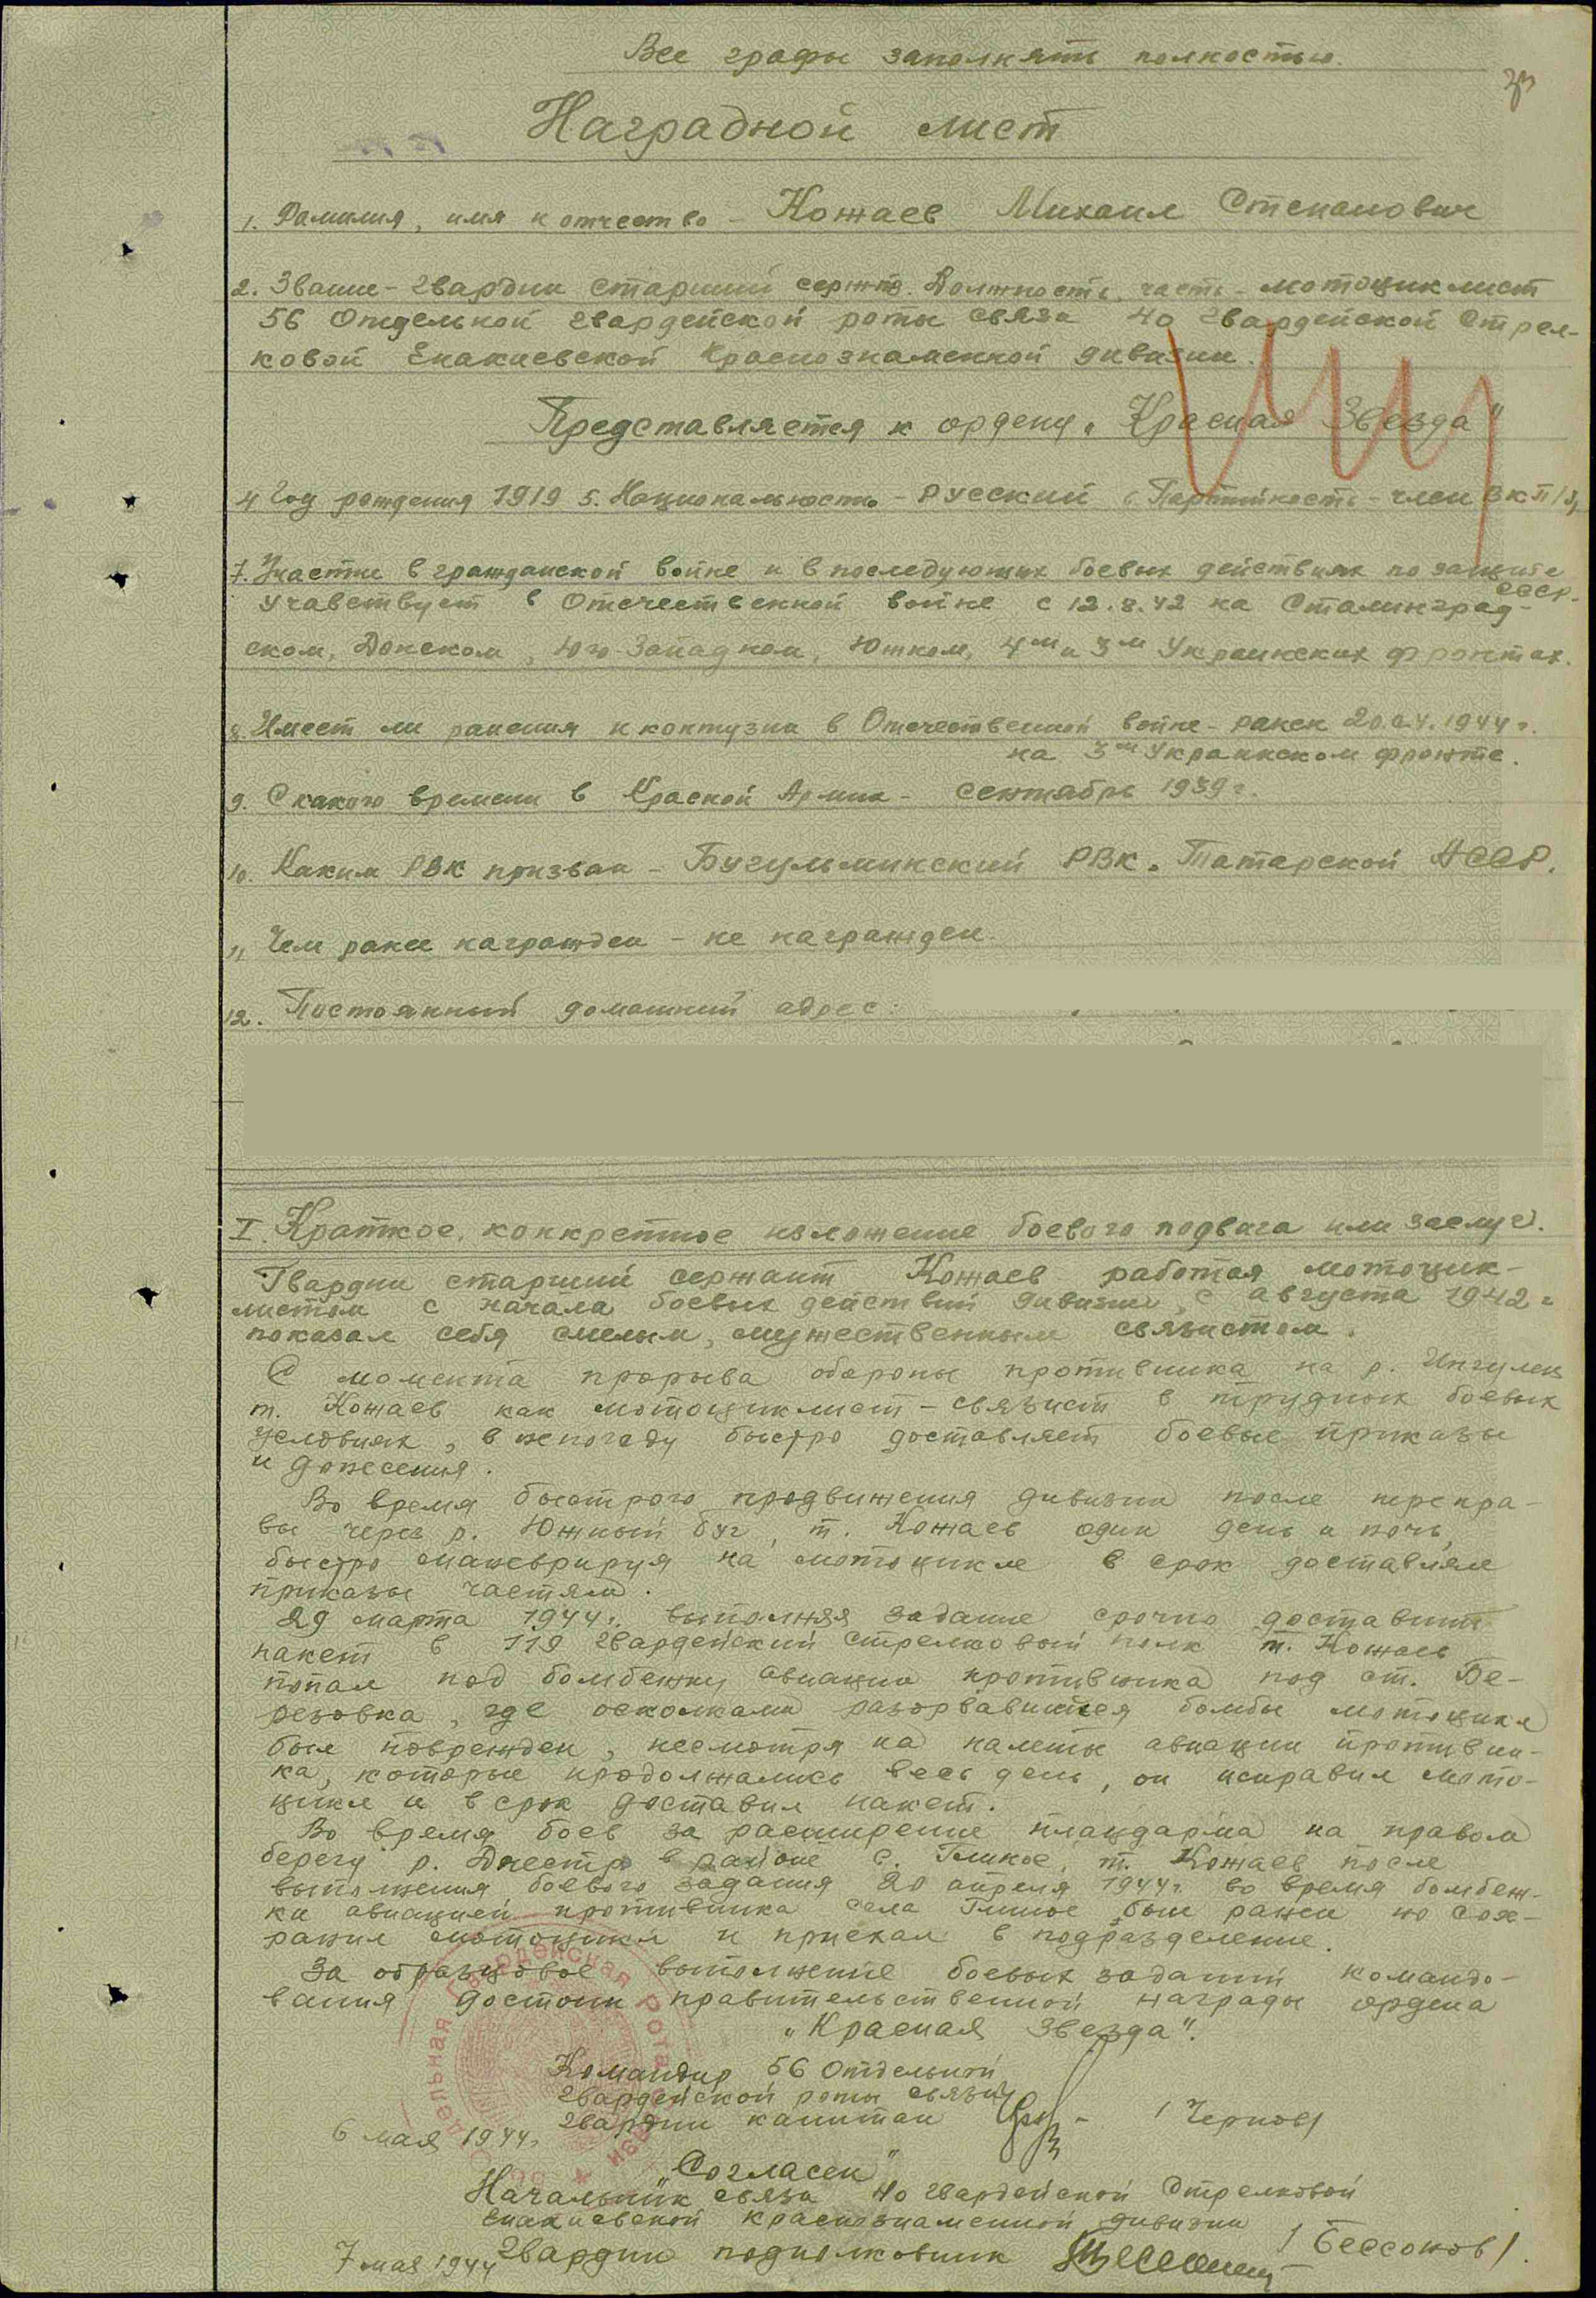 Все графы заполнять полностью.
Наградной лист
1. Фамилия, имя и отчество - Кожаев Михаил Степанович
2. Звание - гвардии старший сержант. Должность, часть - мотоциклист
56 Отдельной гвардейской роты связи 40 гвардейской Стрел-
ковой Енакиевской Краснознаменной дивизии.
Представляется к ордену „Красная Звезда"
4 Год рождения 1919 5. Национальность - русский 6 Партийность - член ВКП/б/
7. Участие в гражданской войне и в последующих боевых действиях по защите
СССР.
Учавствует в Отечественной войне с 12.8.42 на Сталинград-
ском, Донском, Юго-Западном, Южном, 4м и 3м Украинских фронтах.
8. Имеет ли ранения и контузии в Отечественной войне - ранен 20.04.1944 г.
на 3м Украинском фронте.
9. С какого времени в Красной Армии - Сентябрь 1939 г.
10. Каким РВК призван - Бугульминский РВК. Татарской АССР.
11 Чем ранее награжден - не награжден.
12. Постоянный домашний адрес:
I. Краткое, конкретное изложение боевого подвига или заслуг.
Гвардии старший сержант Кожаев работая мотоцик-
листом с начала боевых действий дивизии, с августа 1942 г
показал себя смелым, мужественным связистом.
С момента прорыва обороны противника на р. Ингулец
т. Кожаев как мотоциклист-связист в трудных боевых
условиях, в непогоду быстро доставляет боевые приказы
и донесения.
Во время быстрого продвижения дивизии после перепра-
вы через р. Южный Буг, т. Кожаев один день и ночь,
быстро маневрируя на мотоцикле в срок доставлял
приказы частям.
29 марта 1944 г. выполняя задание срочно доставить
пакет в 119 гвардейский стрелковый полк т. Кожаев
попал под бомбежку авиации противника под ст. Бе-
резовка, где осколками разорвавшейся бомбы мотоцикл
был поврежден, несмотря на налеты авиации противни-
ка, которые продолжались весь день, он исправил мото-
цикл и в срок доставил пакет.
Во время боев за расширение плацдарма на правом
берегу р. Днестр в районе с. Глиное, т. Кожаев после
выполнения боевого задания 20 апреля 1944 г. во время бомбеж-
ки авиацией противника села Глиное был ранен но сох-
ранил мотоцикл и приехал в подразделение.
За образцовое выполнение боевых заданий командо-
вания достоин правительственной награды ордена
„Красная Звезда".
Командир 56 Отдельной
гвардейской роты связи
гвардии капитан / Чернов /
6 мая 1944 г.
„Согласен"
Начальник связи 40 гвардейской Стрелковой
Енакиевской краснознаменной дивизии
Гвардии подполковник / Бессонов /.
7 мая 1944